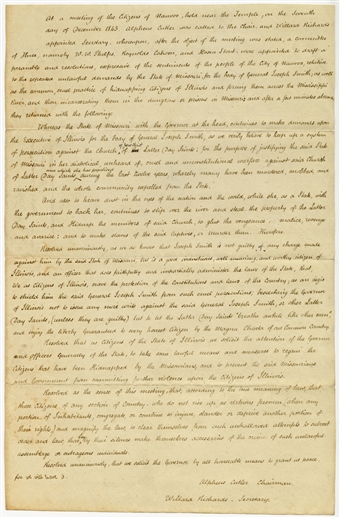 At a meeting of the Citizens of Nauvoo, held near the Temple, on the Seventh
day of December 1843. Alpheus Cutler was called to the Chair, and Willard Richards
appointed Secretary, whereupon, after the object of the meeting was stated, a committee
of three, namely, W. W. Phelps, Reynolds Cahoon, and Hosea Stout, were appointed to draft a
preamble and resolutions, expressive of the sentiments of the people of the City of Nauvoo, relative
to the repeated unlawful demands by the State of Missouri for the body of General Joseph Smith, as well
as the common, cruel practice of kidnapping Citizens of Illinois and forcing them across the Mississippi
River, and then incarcerating them in the dungeons or prisons in Missouri; and after a few minutes absence
they returned with the following:
Whereas the State of Missouri with the Governor at the head, continues to make demands upon
the Executive of Illinois for the body of General Joseph Smith, as we verily believe to keep up a system
of persecution against the Church of Latter Day Saints; for the purpose of justifying the said State
of Missouri in her diabolical, unheard of, cruel and unconstitutional warfare against said Church
of Latter Day Saints, during the last twelve years whereby many have been murdered, mobbed and
ravished and the whole community expelled from the State.
And also to heave out in the eyes of the nation and the world, while she, as a State, with
the government to back her, continues to slip over the line and steal the property of the Latter
Day Saints, and kidnap the members of said Church, to glut her vengeance, malice, revenge
and avarice; and to make slaves of the said captives, or murder them: Therefore
Resolved unanimously, as we do know that Joseph Smith is not guilty of any charge made
against him by the said State of Missouri, but is a good, industrious, well meaning, and worthy citizen of
Illinois, and an officer that does faithfully and impartially administer the laws of the State, that
We as Citizens of Illinois, crave the protection of the Constitution and laws of the Country as an ægis
to shield him the said General Joseph Smith from such cruel persecutions, beseeching the Governor
of Illinois not to issue any more writs against the said General Joseph Smith, or other Latter
Day Saints (unless they are guilty;) but to let the Latter Day Saints breathe awhile like other men,
and enjoy the liberty guaranteed to every honest citizen by the Magna Charta of our Common Country
Resolved that as Citizens of the State of Illinois we solicit the attention of the Governor
and officers Generally of the State, to take some lawful means and measures to regain the
Citizens that have been kidnapped by the Missourians, and to prevent the said Missourians
and Government from committing further violence upon the Citizens of Illinois.
Resolved as the sense of this meeting, that, according to the true meaning of law, that
those Citizens of any section of Country, who do not rise up as virtuous freemen, when any
portion of Inhabitants, congregate or combine to injure, slander or deprive another portion of
their rights, and magnify the law, to clear themselves from such unhallowed attempts to subvert
order and law, that they by their silence make themselves accessories of the crime of such unlawful
assemblage or outrageous individuals.
Resolved unanimously, that we solicit the Governor by all honorable means to grant us peace,
for we will have it.
Alpheus Cutler Chairman.
Willard Richards - Secretary